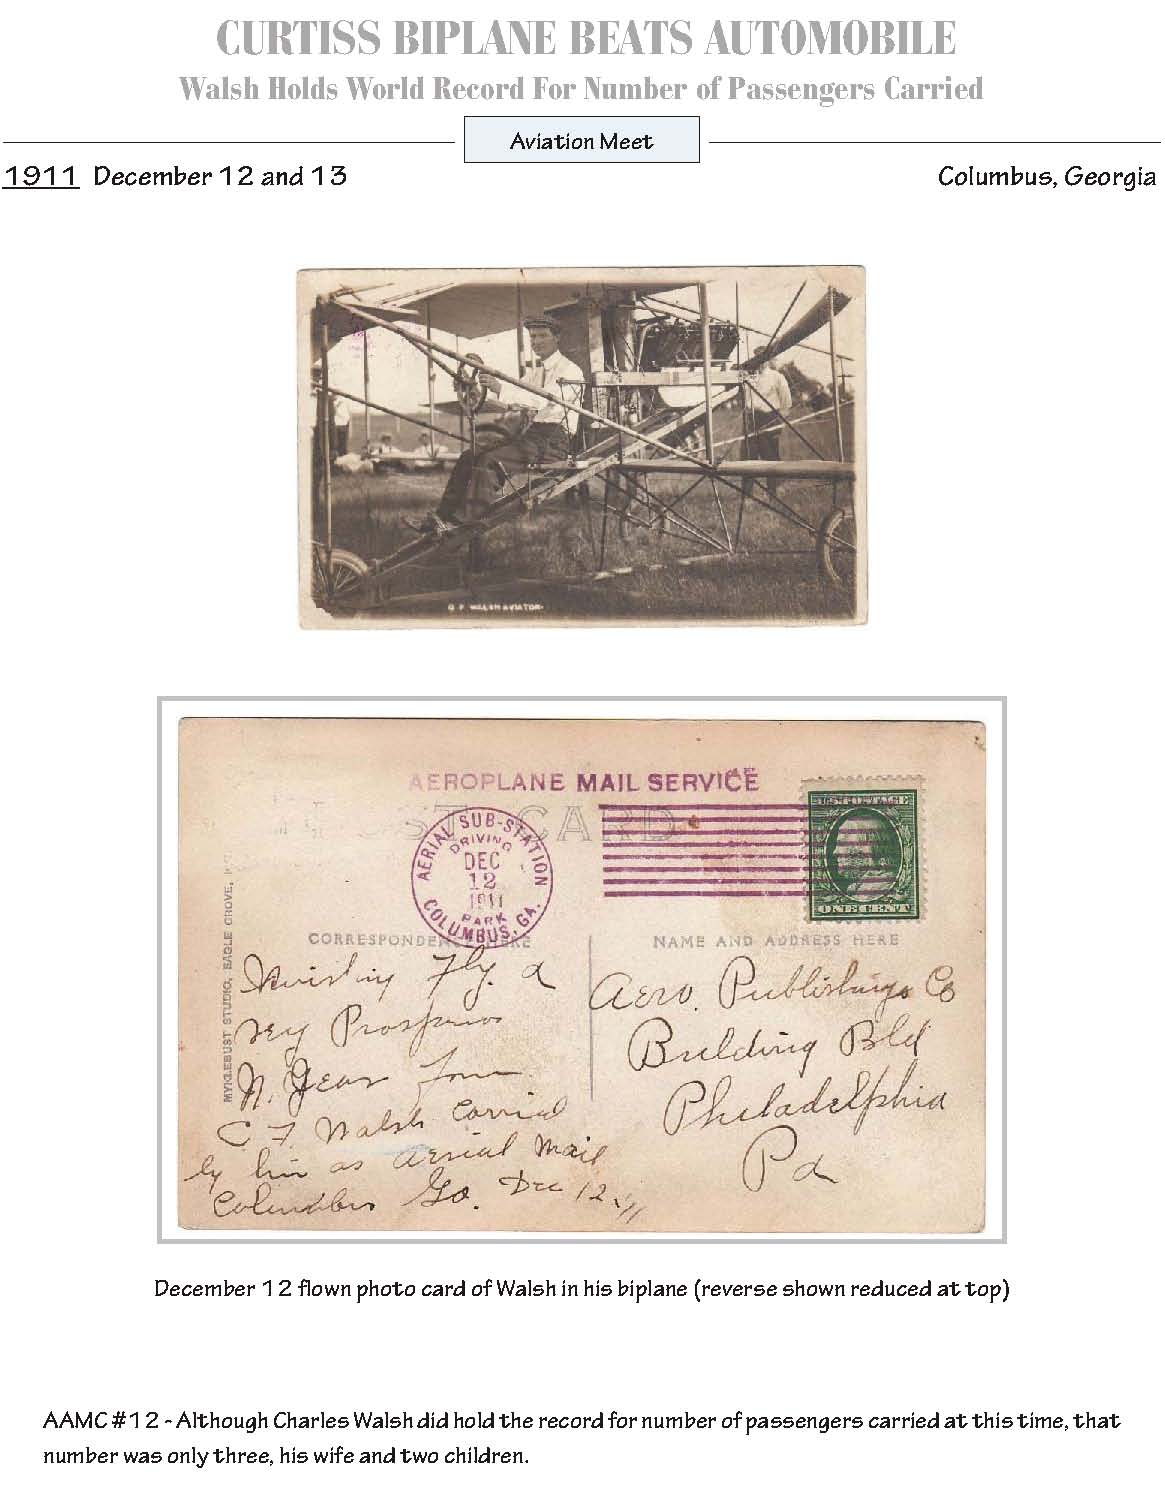 CURTISS BIPLANE BEATS AUTOMOBILE
Walsh Holds World Record For Number of Passengers Carried
Aviation Meet
1911 December 12 and 13
Columbus, Georgia
C F WALSH AVIATOR.
AEROPLANE MAIL SERVICE
POST CARD
AERIAL SUB-STATION
DRIVING
DEC
12
1911
PARK
COLUMBUS, GA.
ONE CENT
CORRESPONDENCE HERE
NAME AND ADDRESS HERE
MYKLEBUST STUDIO, EAGLE GROVE,
Fly. a
Prosperous
N. Year from
C F Walsh Carried
by him as Aerial Mail
Columbus Ga. Dec 12-11
Aero. Publishing Co
Building Bld
Philadelphia
Pa
December 12 flown photo card of Walsh in his biplane (reverse shown reduced at top)
AAMC #12 - Although Charles Walsh did hold the record for number of passengers carried at this time, that
number was only three, his wife and two children.